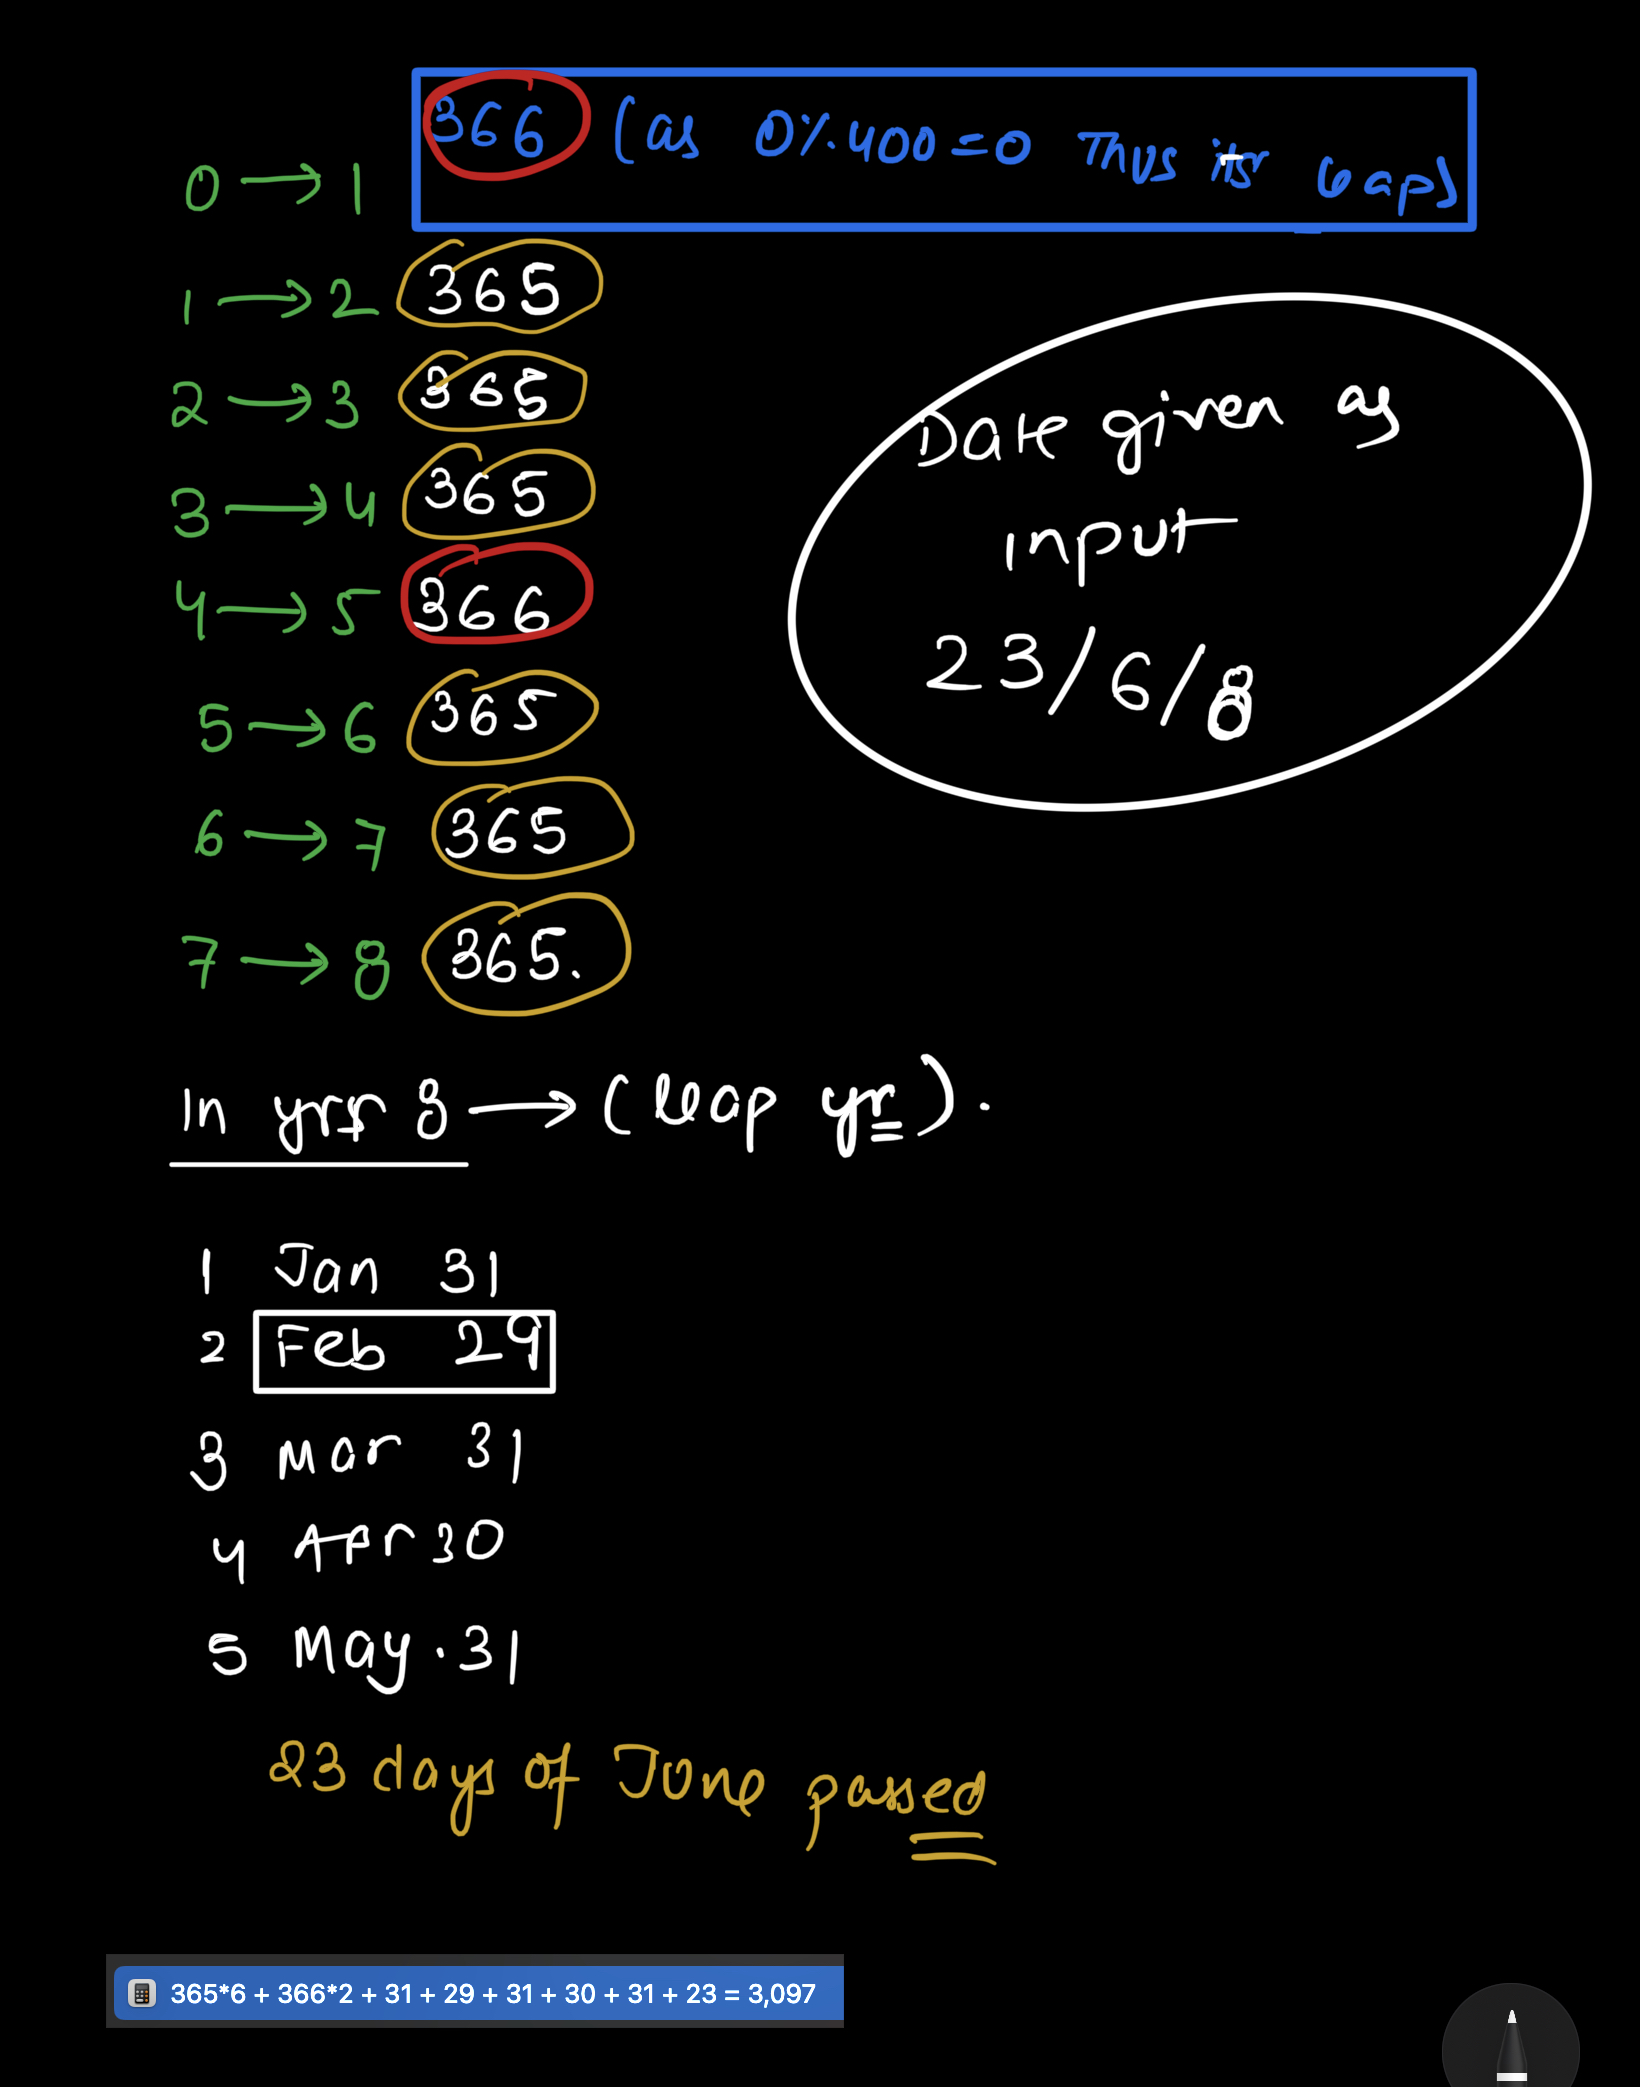 0 → 1 366 (as 0%400=0 Thus itsr leap)
1 → 2 365
2 → 3 365
3 → 4 365
4 → 5 366
5 → 6 365
6 → 7 365
7 → 8 365.
Date given as
input
23/6/8
In yrs 8 → (leap yr).
1 Jan 31
2 Feb 29
3 Mar 31
4 Apr 30
5 May. 31
23 days of June passed
365*6 + 366*2 + 31 + 29 + 31 + 30 + 31 + 23 = 3,097